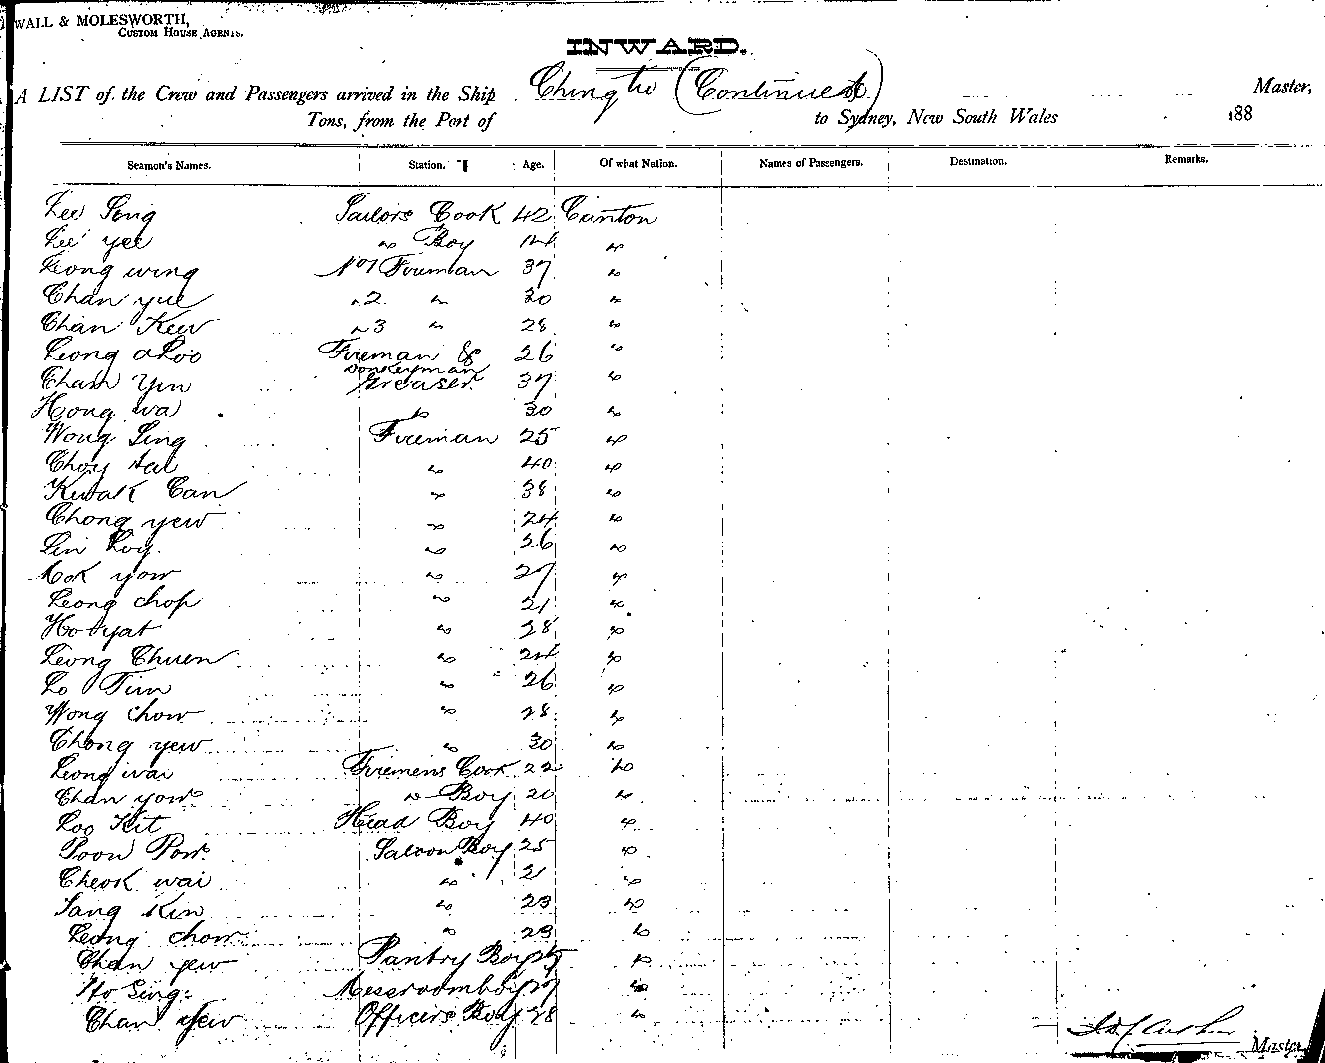 WALL & MOLESWORTH,
CUSTOM HOUSE AGENTS.
INWARD.
A LIST of the Crew and Passengers arrived in the Ship Chingtu (Continued) Master,
Tons, from the Port of to Sydney, New South Wales 188
Seamen's Names. Station. Age. Of what Nation. Names of Passengers. Destination. Remarks.
Lee Song Sailors Cook 42 Canton
Lee yee " Boy 24 "
Leong wing No 1 Fireman 37 "
Chan yue " 2 " 30 "
Chan Kew " 3 " 28 "
Leong aloo Fireman & 26 "
donkeyman
Cham Yin Greaser 37 "
Hong wa " 30 "
Wong Sing Fireman 25 "
Choy tai " 40 "
Kwak Can " 38 "
Chong yew " 24 "
Lin Loy " 26 "
Mok yow " 27 "
Leong chop " 21 "
Ho yat " 28 "
Leong Chuen " 24 "
Lo Tim " 26 "
Wong chow " 28 "
Chong yew " 30 "
Leong wai Firemens Cook 22 "
Chan yow " Boy 20 "
Loo Kit Head Boy 40 "
Poon Pow Saloon Boy 25 "
Cheok wai " 21 "
Sang Kin " 23 "
Leong chow " 23 "
Chan yew Pantry Boy "
Ho Sing Messroomboy 27 "
Chan Yew Officers Boy 28 "
Master,